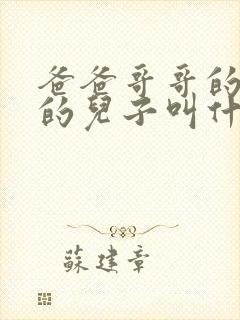 爸爸哥哥的
的兒子叫什
蘇建章